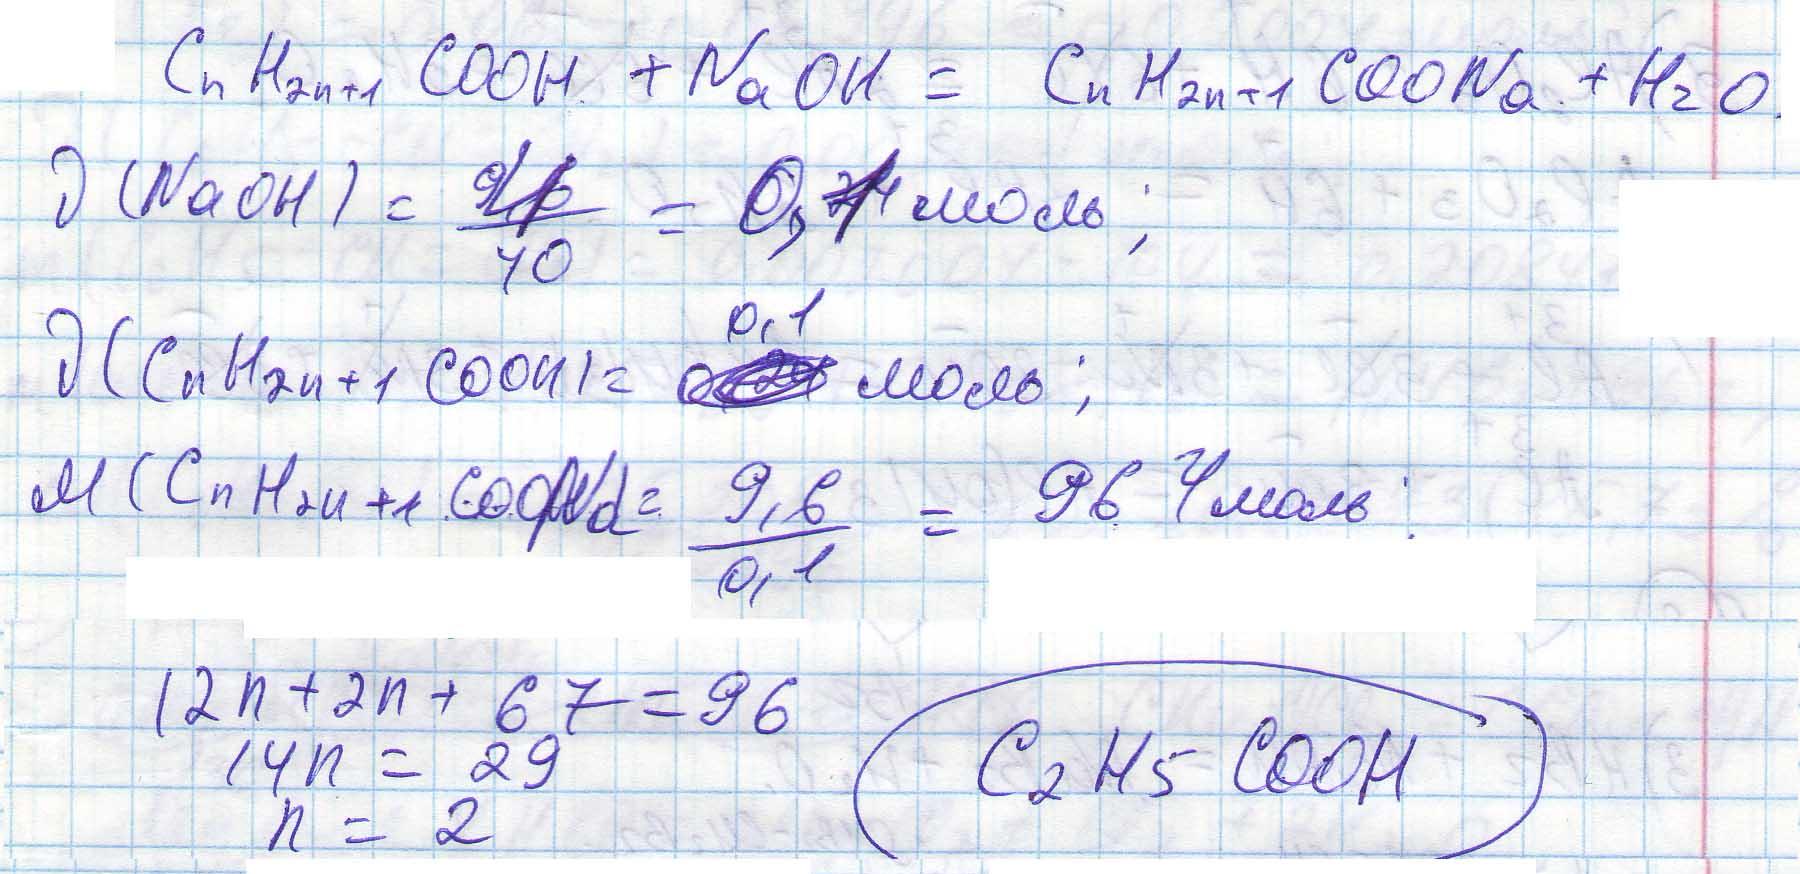 CnH2n+1COOH + NaOH = CnH2n+1COONa + H2O
ν(NaOH) = /40 = 0,1 моль;
0,1
ν(CnH2n+1COOH) = моль;
M(CnH2n+1COONa = 9,6/0,1 = 96 г/моль;
12n + 2n + 67 = 96
14n = 29
n = 2
C2H5COOH